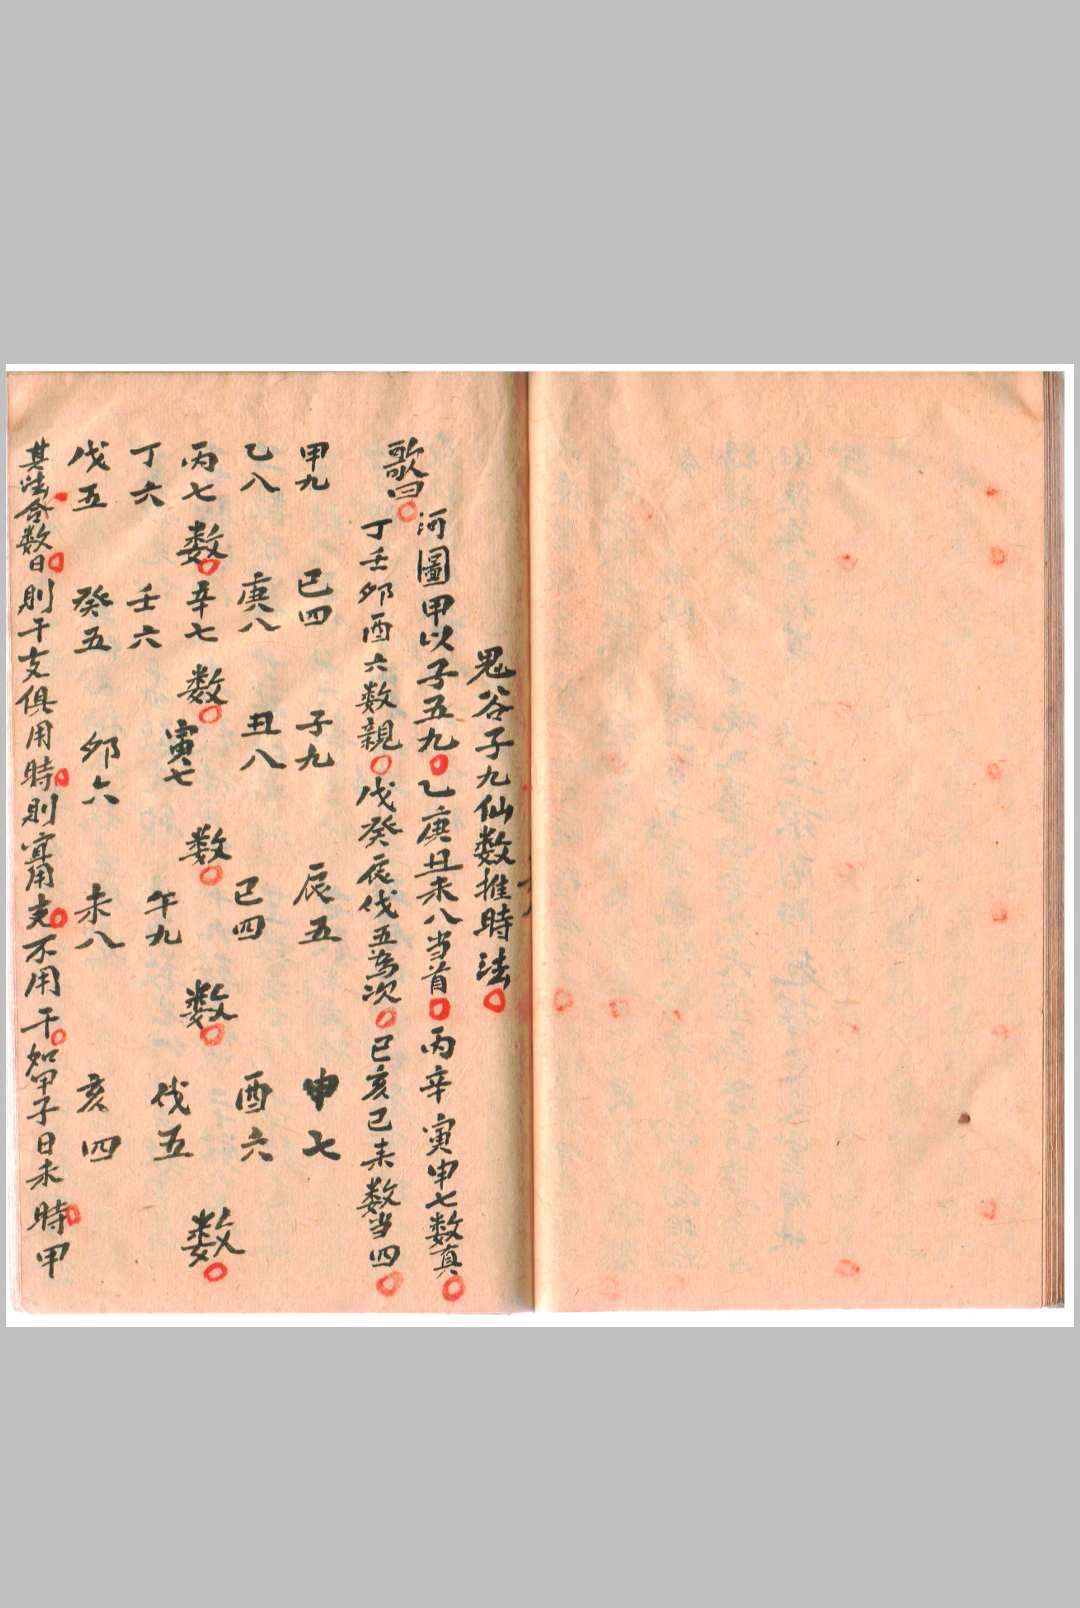 鬼谷子九仙数推時法
歌曰 河圖甲以子五九 乙庚丑未八当首 丙辛寅申七数真
丁壬夘酉六数親 戊癸辰伐五為次 巳亥己未数当四
甲九 己四 子九 辰五 申七
乙八 庚八 丑八 巳四 酉六
丙七 数 辛七 数 寅七 数 数 数
丁六 壬六 午九 伐五
戊五 癸五 夘六 未八 亥四
其法合数日 則干支俱用 時則宜用支 不用干 如甲子日未時 甲